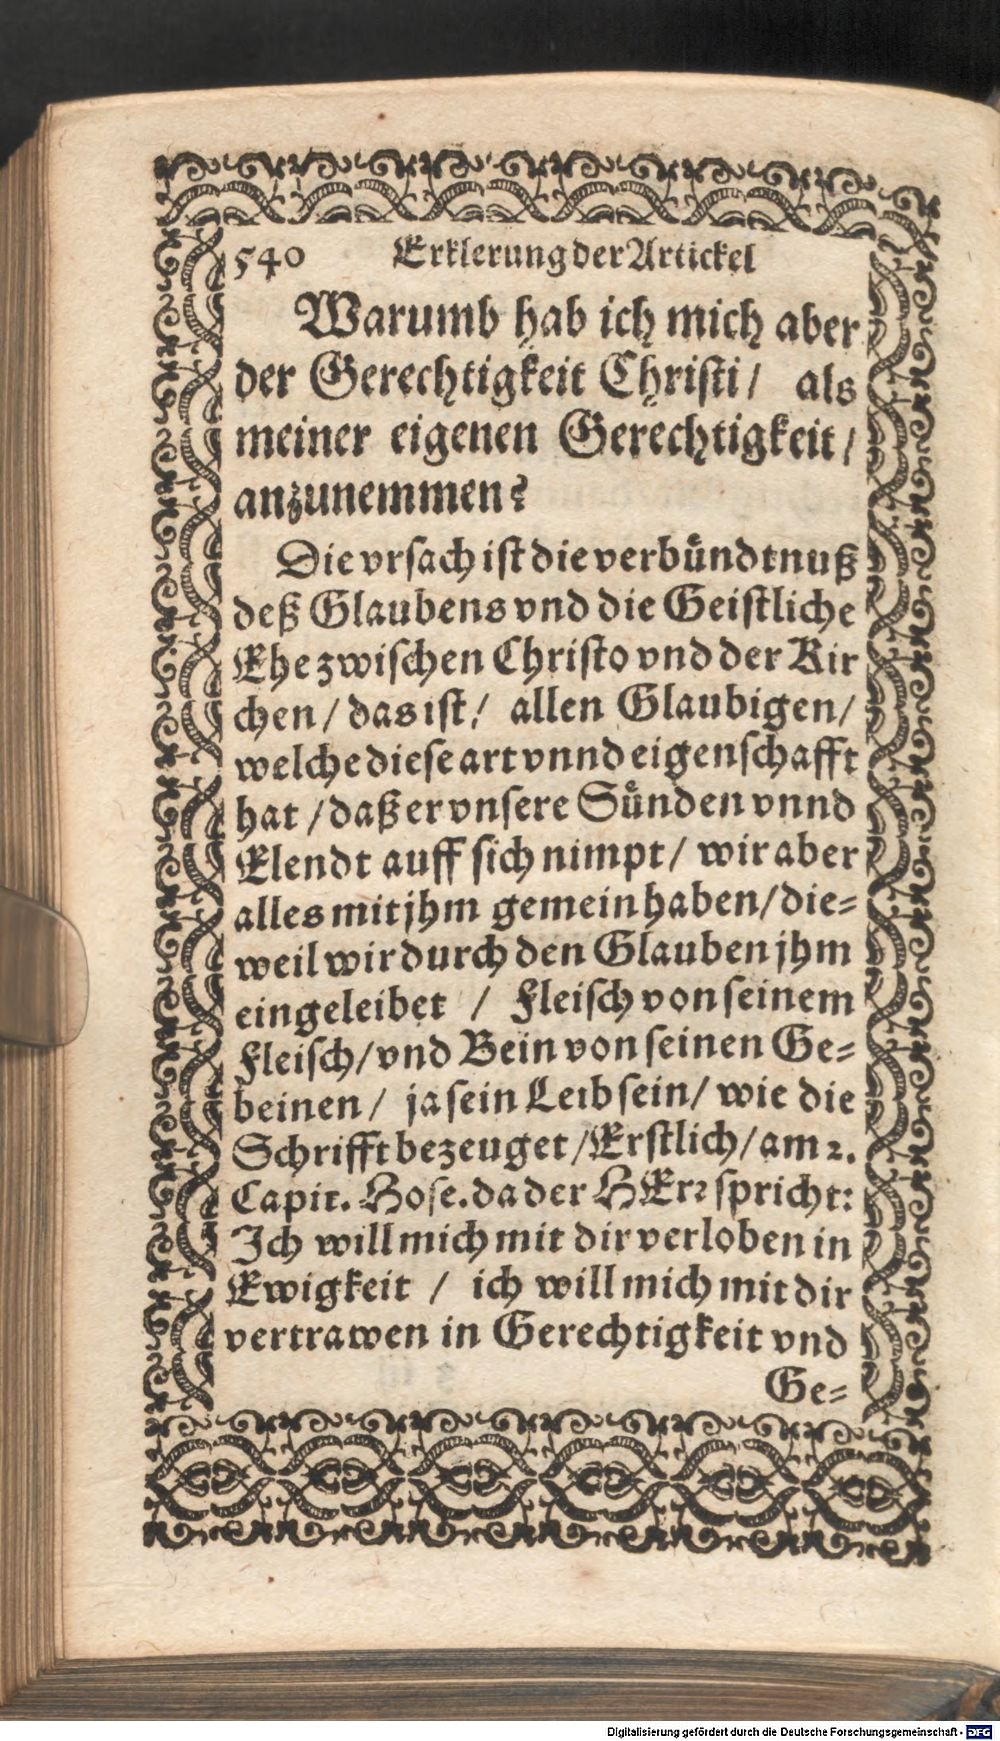 540 Erklerung der Artickel
Warumb hab ich mich aber
der Gerechtigkeit Christi / als
meiner eigenen Gerechtigkeit /
anzunemmen?
Die vrsach ist die verbündtnuß
deß Glaubens vnd die Geistliche
Ehe zwischen Christo vnd der Kir
chen / das ist / allen Glaubigen /
welche diese art vnnd eigenschafft
hat / daß er vnsere Sünden vnnd
Elendt auff sich nimpt / wir aber
alles mit jhm gemein haben / die-
weil wir durch den Glauben jhm
eingeleibet / Fleisch von seinem
Fleisch / vnd Bein von seinen Ge-
beinen / ja sein Leib sein / wie die
Schrifft bezeuget / Erstlich / am 2.
Capit. Hose. da der HErr spricht:
Ich will mich mit dir verloben in
Ewigkeit / ich will mich mit dir
vertrawen in Gerechtigkeit vnd
Ge-
Digitalisierung gefördert durch die Deutsche Forschungsgemeinschaft - DFG